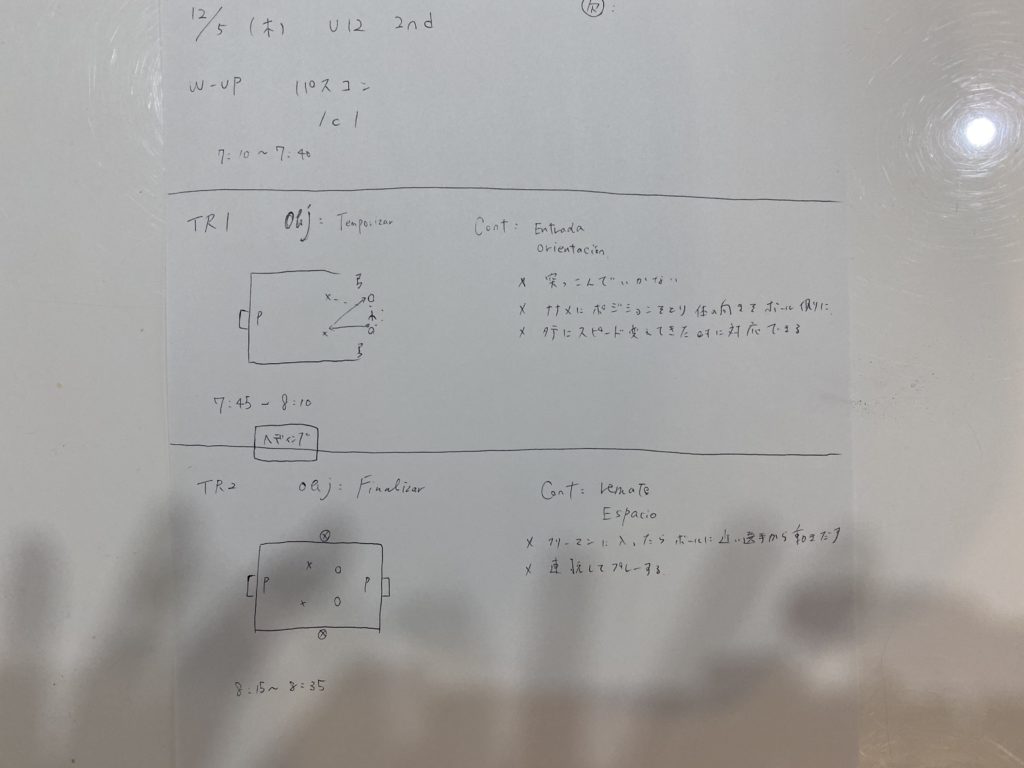 12/5 (木) U12 2nd
欠:
W-UP パスコン
1c1
7:10～7:40
TR1 Obj: Temporizar Cont: Entrada
Orientación
P
x 突っこんでいかない
x ナナメにポジションをとり 体の向きを ボール側に
x タテにスピード変えてきた時に対応できる
7:45～8:10
ヘディング
TR2 Obj: Finalizar Cont: remate
Espacio
P P
x フリーマンに入ったら ボールに近い選手から動きだす
x 連続してプレーする
8:15～8:35